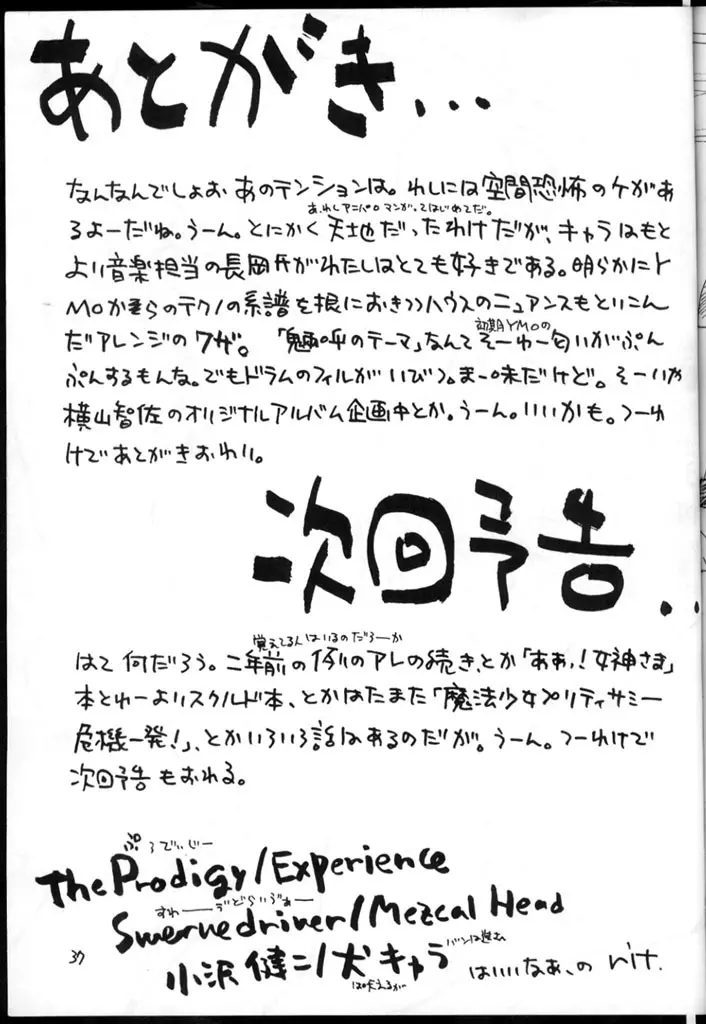 あとがき...
なんなんでしょお あのテンションは。わしには空間恐怖のケがあ
あ、わしアニパロマンガってはじめてだ。
るよーだね。うーん。とにかく天地だったわけだが、キャラはもと
より音楽担当の長岡氏がわたしはとても好きである。明らかにY
MOか垂らのテクノの系譜を根におきつつハウスのニュアンスもとりこん
初期YMOの
だアレンジのワザ。「魎呼のテーマ」なんてそーゆー匂いがぷん
ぷんするもんな。でもドラムのフィルがいびつ。まー味だけど。そーいや
横山智佐のオリジナルアルバム企画中とか。うーん。いいかも。つーわ
けであとがきおわり。
次回予告..
覚えてる人はいるのだろーか
はて何だろう。二年前の例のアレの続き、とか「ああっ!女神さま」
本とゆーよりスクルド本、とかはたまた「魔法少女プリティサミー
危機一発!」、とかいろいろ話はあるのだが。うーん。つーわけで
次回予告もおわる。
ぷろでぃじー
The Prodigy/Experience
すわーーーゔどらいゔぁー
Swervedriver/Mezcal Head
小沢健二/犬キャラ バンは進む はいいなあ、の
は吠えるが
37